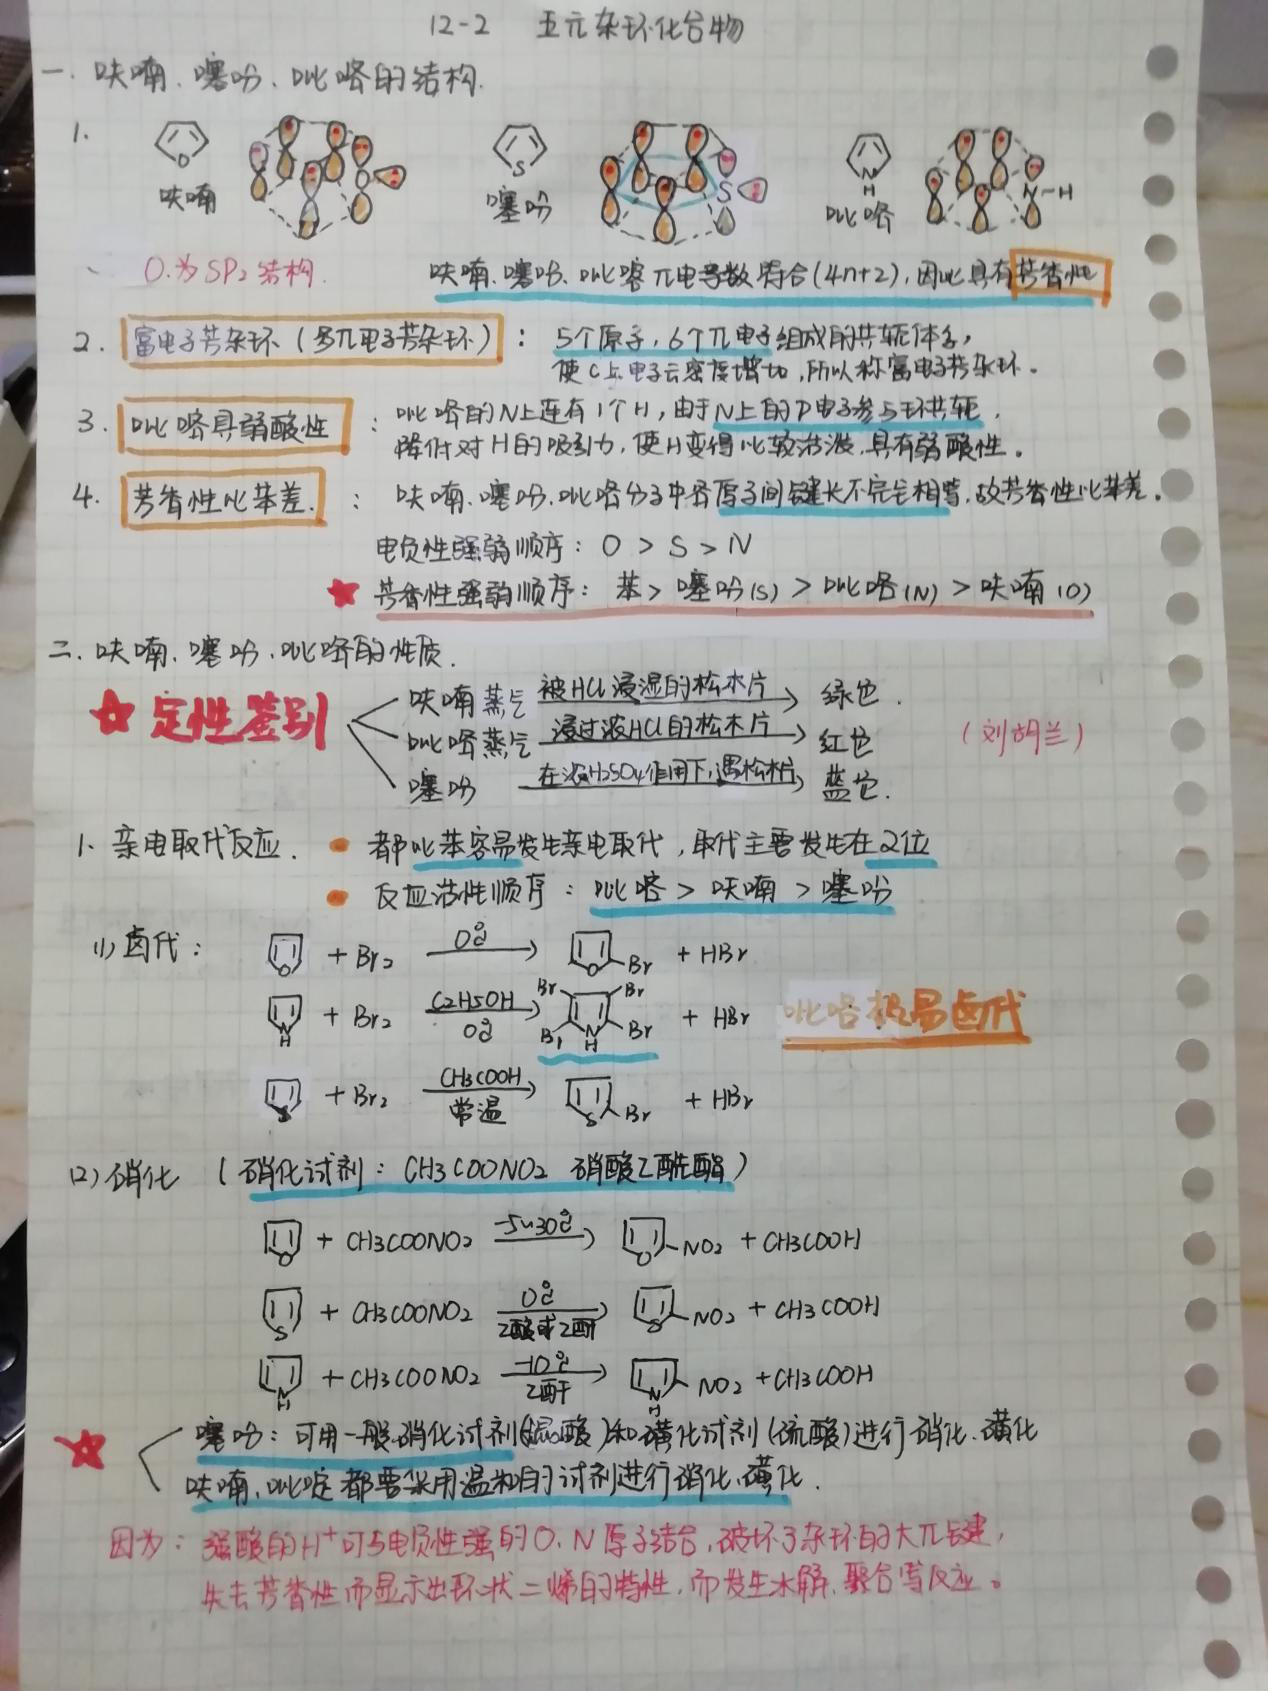 12-2 五元杂环化合物
一. 呋喃、噻吩、吡咯的结构.
1.
O
呋喃
O
S
噻吩
S
N
H
吡咯
N-H
O.为SP2结构.
呋喃、噻吩、吡咯π电子数符合(4n+2),因此具有芳香性
2. 富电子芳杂环(多π电子芳杂环): 5个原子,6个π电子组成的共轭体系,
使C上电子云密度增加,所以称富电子芳杂环.
3. 吡咯具弱酸性: 吡咯的N上连有1个H,由于N上的P电子参与环共轭,
降低对H的吸引力,使H变得比较活泼,具有弱酸性.
4. 芳香性比苯差.: 呋喃、噻吩、吡咯分子中各原子间键长不完全相等,故芳香性比苯差.
电负性强弱顺序: O > S > N
★ 芳香性强弱顺序: 苯 > 噻吩(S) > 吡咯(N) > 呋喃(O)
二. 呋喃、噻吩、吡咯的性质.
☆ 定性鉴别
呋喃蒸气 被HCl浸湿的松木片 → 绿色.
吡咯蒸气 浸过浓HCl的松木片 → 红色
(刘胡兰)
噻吩 在浓H2SO4作用下,遇松木片 → 蓝色.
1. 亲电取代反应. • 都比苯容易发生亲电取代,取代主要发生在2位
• 反应活性顺序: 吡咯 > 呋喃 > 噻吩
(1) 卤代:
O + Br2 0℃ → O Br + HBr
N H + Br2 C2H5OH 0℃ → Br Br Br N H Br + HBr 吡咯极易卤代
S + Br2 CH3COOH 常温 → S Br + HBr
(2) 硝化 (硝化试剂: CH3COONO2 硝酸乙酰酯)
O + CH3COONO2 -5~30℃ → O NO2 + CH3COOH
S + CH3COONO2 0℃ 乙酸或乙酐 → S NO2 + CH3COOH
N H + CH3COONO2 -10℃ 乙酐 → N H NO2 + CH3COOH
☆ 噻吩: 可用一般硝化试剂(混酸)和磺化试剂(硫酸)进行硝化、磺化
呋喃、吡啶都要采用温和的试剂进行硝化、磺化.
因为: 强酸的H+可与电负性强的O、N原子结合,破坏了杂环的大π键,
失去芳香性而显示出环状二烯的特性,而发生水解、聚合等反应。